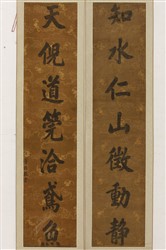 知水仁山徵動靜
天倪道筦洽鳶魚